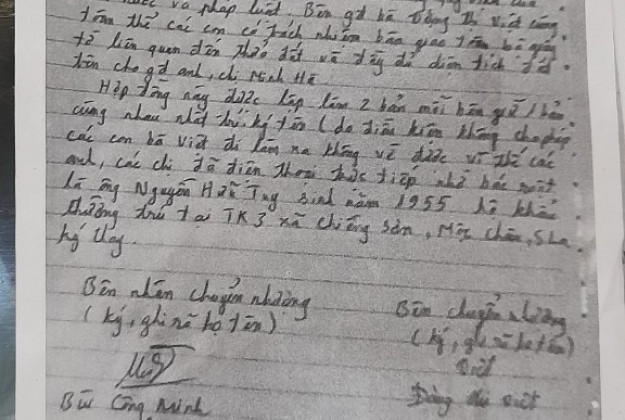 nước và pháp luật. Bên gđ bà Đặng Thị Việt cùng
toàn thể các con có trách nhiệm bàn giao toàn bộ giấy
tờ liên quan đến thửa đất và đầy đủ diện tích đất
trên cho gđ anh, chị Minh Hà
Hợp đồng này được lập làm 2 bản mỗi bên giữ 1 bản
cùng nhau nhất trí ký tên (do điều kiện không cho phép
các con bà Việt đi làm xa không về được vì thế các
anh, các chị đã điện thoại trực tiếp nhờ bác
là ông Nguyễn Hữu sinh năm 1955 hộ khẩu
thường trú tại TK3 xã Chiềng Sơn, Mộc Châu, SLa
ký thay.
Bên nhận chuyển nhường
(ký, ghi rõ họ tên)
Bùi Công Minh
Bên chuyển nhường
(ký, ghi rõ họ tên)
Việt
Đặng thị việt